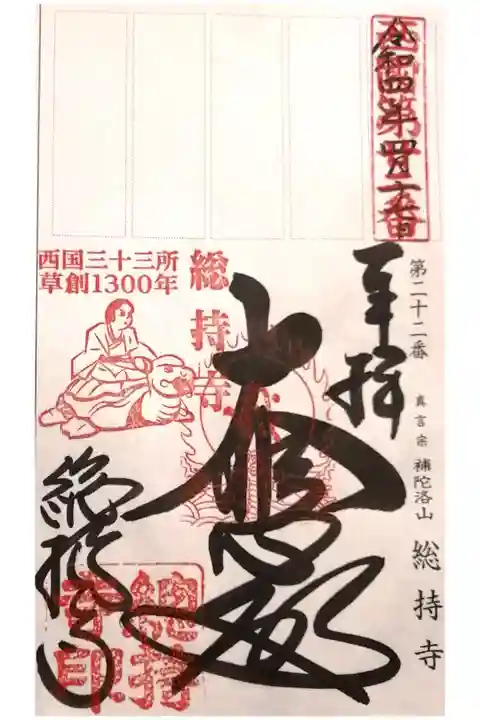 西國第廿二番
令和四年四月
第二十二番 真言宗 補陀洛山 総持寺
奉拝
大悲殿
総持寺
西国三十三所
草創1300年
総持寺
總持寺印